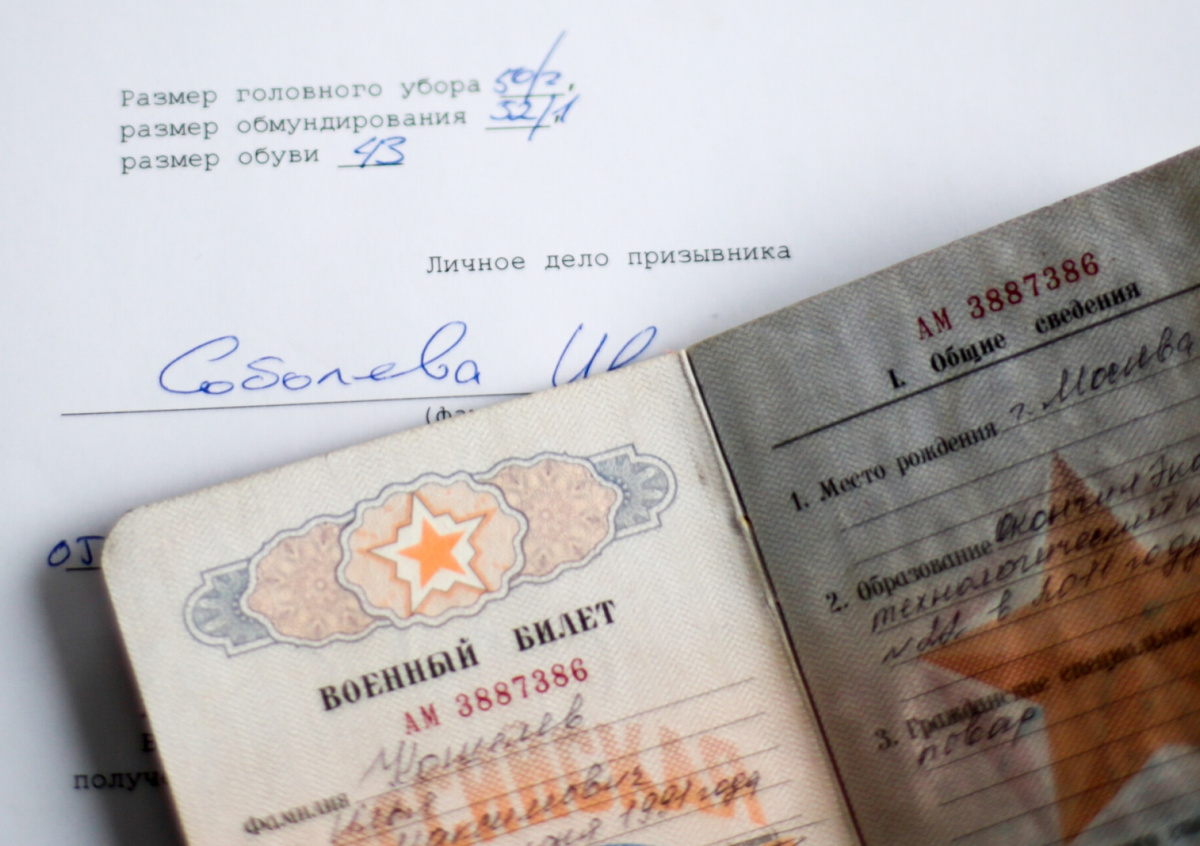 Размер головного убора 50/2.
размер обмундирования 52/1
размер обуви 43
Личное дело призывника
Соболева Ив
(фа
ОТ
получ
ВОЕННЫЙ БИЛЕТ
АМ 3887386
Фамилия
Илья
Максимович
1991 года
АМ 3887386
I. Общие сведения
1. Место рождения г. Москва
2. Образование окончил
технологический
№22 в 2011 году
3. Гражданские специальн
повар